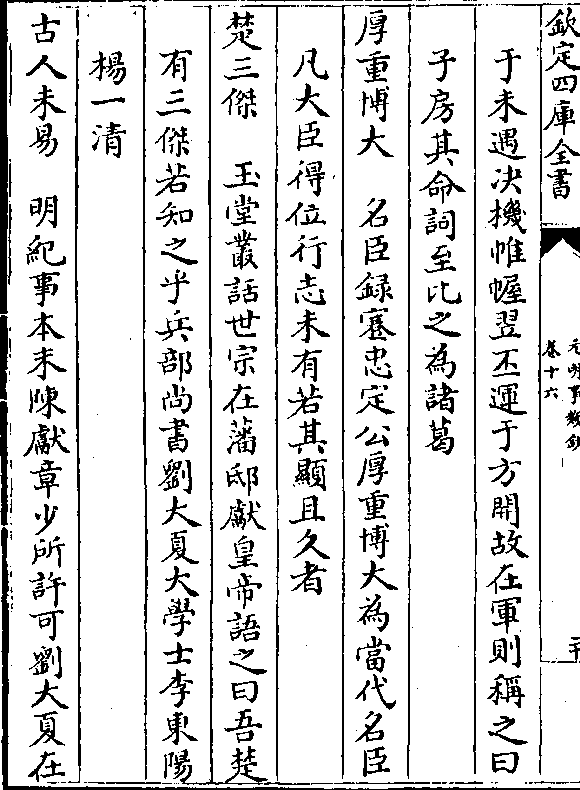 欽定四庫全書
元明事類鈔
卷十六
于未遇决機帷幄翌丕運于方開故在軍則稱之曰
子房其命詞至比之為諸葛
厚重博大　名臣録蹇忠定公厚重博大為當代名臣
凡大臣得位行志未有若其顯且久者
楚三傑　玉堂叢話世宗在藩邸獻皇帝語之曰吾楚
有三傑若知之乎兵部尚書劉大夏大學士李東陽
楊一清
古人未易　明紀事本末陳獻章少所許可劉大夏在